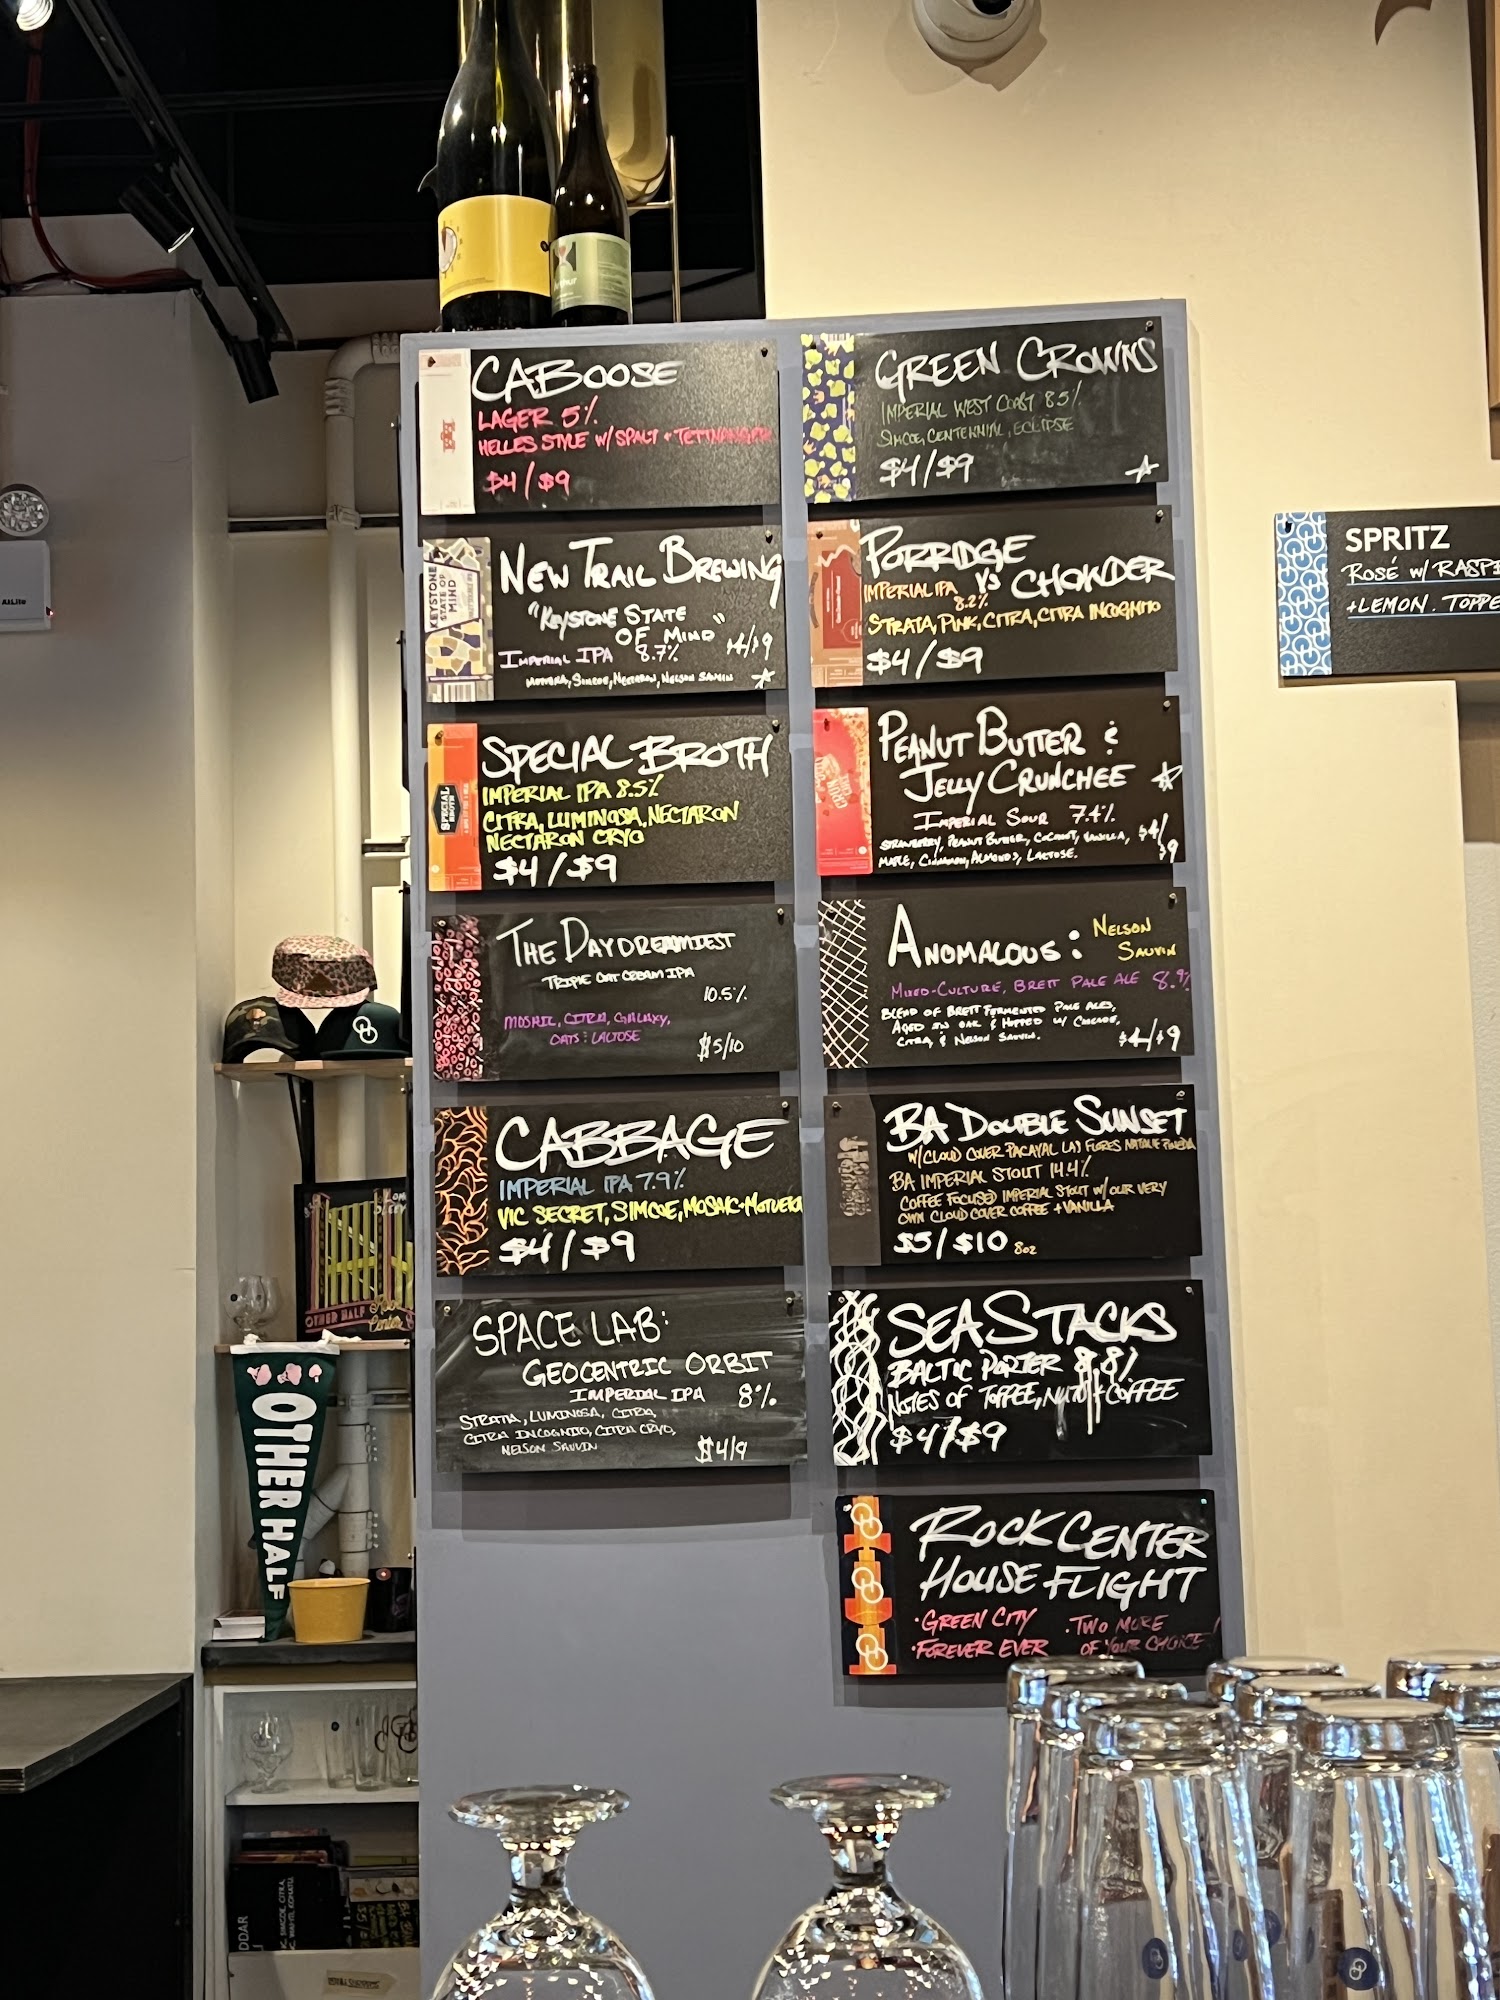 CABOOSE
LAGER 5%
HELLES STYLE W/ SPALT + TETTNANGER
$4/$9
KEYSTONE
STATE OF
MIND
NEW TRAIL BREWING
"KEYSTONE STATE
OF MIND"
IMPERIAL IPA 8.7% $4/$9
MOTUEKA, SIMCOE, NECTARON, NELSON SAUVIN
SPECIAL
BROTH
SPECIAL BROTH
IMPERIAL IPA 8.5%
CITRA, LUMINOSA, NECTARON
NECTARON CRYO
$4/$9
THE DAYDREAMIEST
TRIPLE OAT CREAM IPA
10.5%
MOSAIC, CITRA, GALAXY,
OATS & LACTOSE
$5/10
CABBAGE
IMPERIAL IPA 7.9%
VIC SECRET, SIMCOE, MOSAIC + MOTUEKA
$4/$9
SPACE LAB:
GEOCENTRIC ORBIT
IMPERIAL IPA 8%
STRATA, LUMINOSA, CITRA,
CITRA INCOGNITO, CITRA CRYO,
NELSON SAUVIN
$4/9
GREEN CROWNS
IMPERIAL WEST COAST 8.5%
SIMCOE, CENTENNIAL, ECLIPSE
$4/$9
PORRIDGE
VS CHOWDER
IMPERIAL IPA
8.2%
STRATA, PINK, CITRA, CITRA INCOGNITO
$4/$9
PEANUT BUTTER &
JELLY CRUNCHEE
IMPERIAL SOUR 7.4%
STRAWBERRY, PEANUT BUTTER, COCONUT, VANILLA,
MAPLE, CINNAMON, ALMONDS, LACTOSE.
$4/
$9
ANOMALOUS: NELSON
SAUVIN
MIXED-CULTURE, BRETT PALE ALE 8.9%
BLEND OF BRETT FERMENTED PALE ALES,
AGED IN OAK & HOPPED W/
CITRA, & NELSON SAUVIN.
$4/$9
BA DOUBLE SUNSET
W/CLOUD COVER PACAYAL LAS FLORES NATALIE PINEDA
BA IMPERIAL STOUT 14.4%
COFFEE FOCUSED IMPERIAL STOUT W/ OUR VERY
OWN CLOUD COVER COFFEE + VANILLA
$5/$10 8oz
SEA STACKS
BALTIC PORTER 8.8%
NOTES OF TOFFEE, NUTS + COFFEE
$4/$9
ROCK CENTER
HOUSE FLIGHT
·GREEN CITY ·TWO MORE
·FOREVER EVER OF YOUR CHOICE!
SPRITZ
ROSÉ W/ RASP
+LEMON. TOPPE
OTHER HALF
OTHER HALF
Center